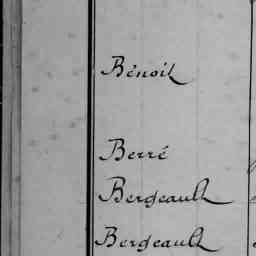 Bénoit
Berré
Bergeault
Bergeault